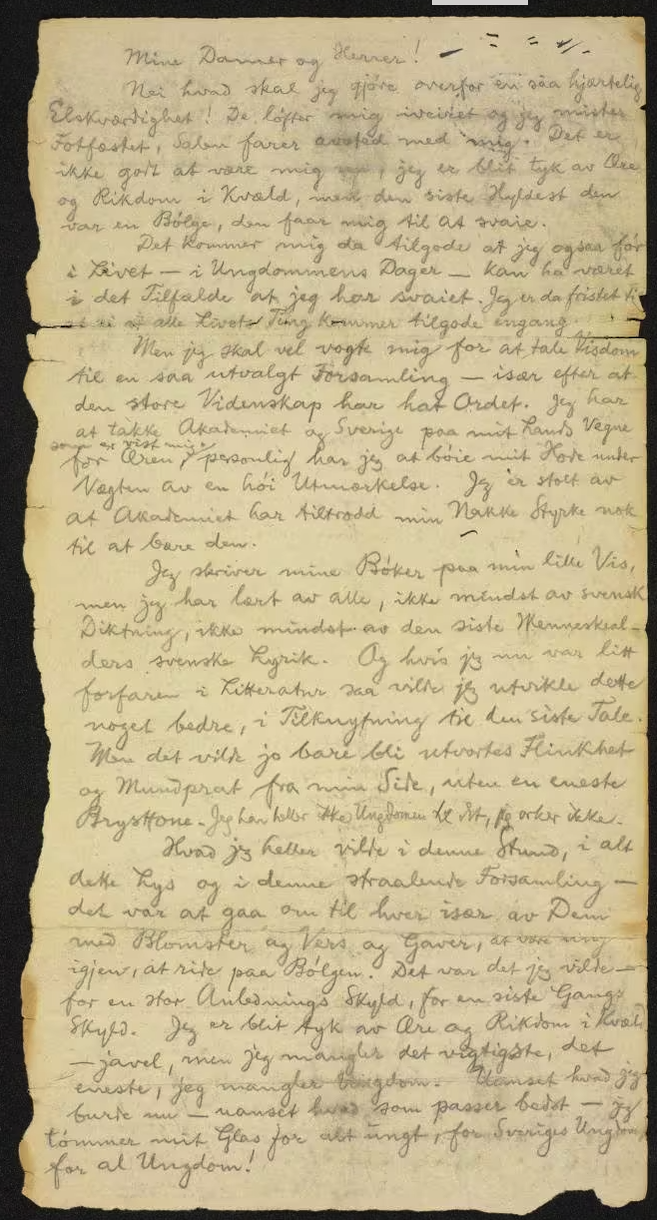 Mine Damer og Herrer!
Nei hvad skal jeg gjöre overfor en saa hjærtelig
Elskværdighet! De löfter mig iveiret og jeg mister
Fotfæstet, Salen farer avsted med mig. Det er
ikke godt at være mig nu, jeg er blit tyk av Ære
og Rikdom i Kvæld, men den siste Hyldest den
var en Bölge, den faar mig til at svaie.
Det kommer mig da tilgode at jeg ogsaa för
i Livet — i Ungdommens Dager — kan ha været
i det Tilfælde at jeg har svaiet. Jeg er da fristet til
at si at alle Livets Ting kommer tilgode engang.
Men jeg skal vel vogte mig for at tale Visdom
til en saa utvalgt Forsamling — især efter at
den store Videnskap har hat Ordet. Jeg har
at takke Akademiet og Sverige paa mit Lands Vegne
som er vist mig.
for Æren, personlig har jeg at böie mit Hode under
Vægten av en höi Utmærkelse. Jeg er stolt av
at Akademiet har tiltrodd min Nakke Styrke nok
til at bære den.
Jeg skriver mine Böker paa min lille Vis,
men jeg har lært av alle, ikke mindst av svensk
Diktning, ikke mindst av den siste Menneskeal-
ders svenske Lyrik. Og hvis jeg nu var litt
forfaren i Litteratur saa vilde jeg utvikle dette
noget bedre, i Tilknytning til den siste Tale.
Men det vilde jo bare bli utvortes Flinkhet
og Mundprat fra min Side, uten en eneste
Brysttone. Jeg har heller ikke Ungdommen til det, jeg orker ikke.
Hvad jeg heller vilde i denne Stund, i alt
dette Lys og i denne straalende Forsamling —
det var at gaa om til hver især av Dem
med Blomster og Vers og Gaver, at være ung
igjen, at ride paa Bölgen. Det var det jeg vilde —
for en stor Anlednings Skyld, for en siste Gangs
Skyld. Jeg er blit tyk av Ære og Rikdom i Kvæld
— javel, men jeg mangler det vigtigste, det
eneste, jeg mangler Ungdom. Uanset hvad jeg
burde nu — uanset hvad som passer bedst — jeg
tömmer mit Glas for alt ungt, for Sveriges Ungdom,
for al Ungdom!